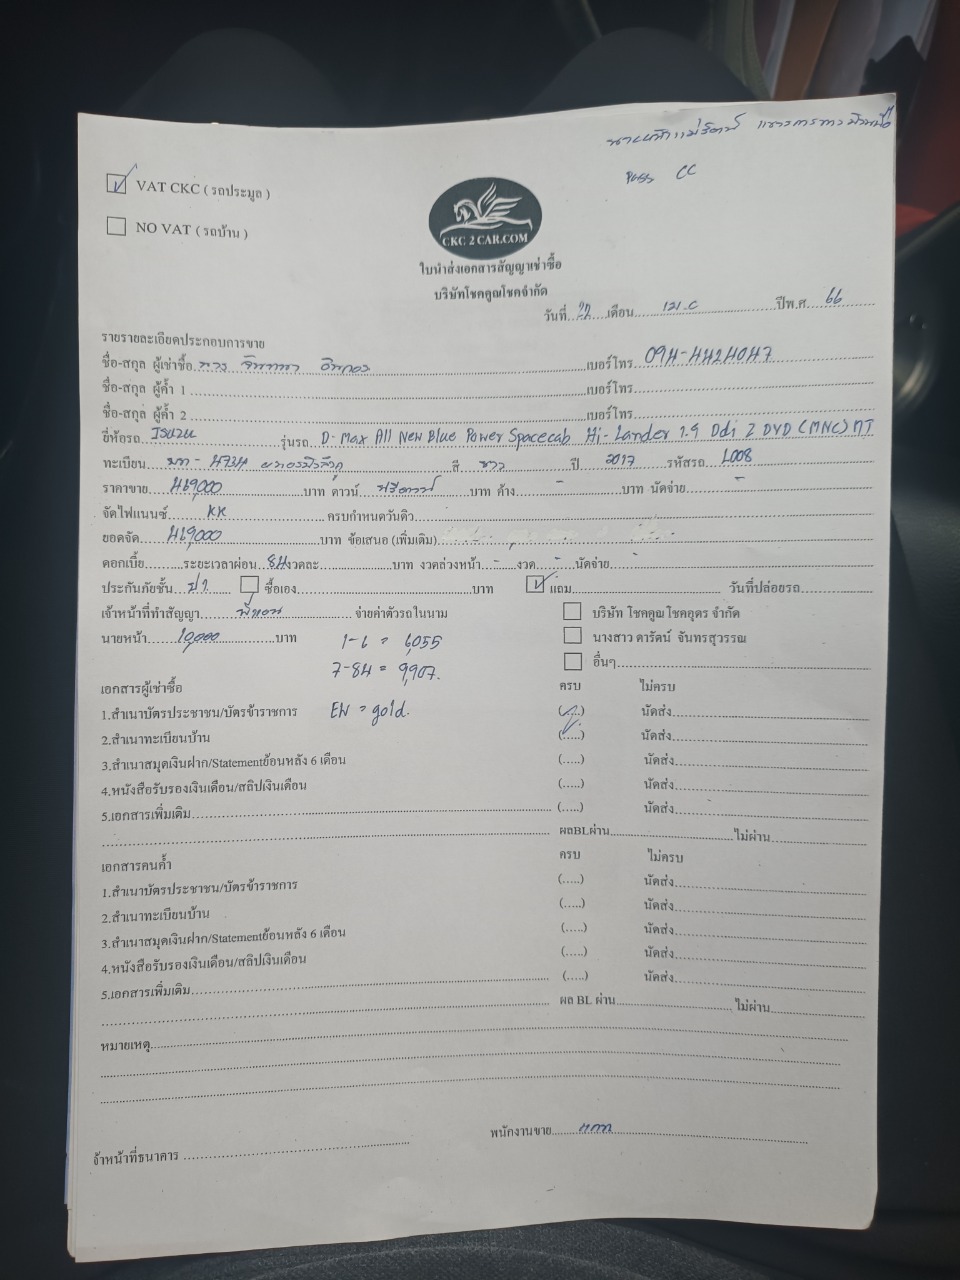 Pass CC
VAT CKC ( รถประมูล )
NO VAT ( รถบ้าน )
CKC 2 CAR.COM
ใบนำส่งเอกสารสัญญาเช่าซื้อ
บริษัทโชคคูณโชคจำกัด
วันที่ เดือน เม.ย ปีพ.ศ. 66
รายรายละเอียดประกอบการขาย
ชื่อ-สกุล ผู้เช่าซื้อ นาง จินตนา เบอร์โทร 094-4424047
ชื่อ-สกุล ผู้ค้ำ 1 เบอร์โทร
ชื่อ-สกุล ผู้ค้ำ 2 เบอร์โทร
ยี่ห้อรถ Isuzu รุ่นรถ D-Max All New Blue Power Spacecab Hi-Lander 1.9 Ddi Z DVD (MNC) MT
ทะเบียน สี ขาว ปี 2017 รหัสรถ L008
ราคาขาย 469,000 บาท ดาวน์ ฟรีดาวน์ บาท ค้าง - บาท นัดจ่าย -
จัดไฟแนนซ์ KK ครบกำหนดวันคิว
ยอดจัด 469,000 บาท ข้อเสนอ (เพิ่มเติม)
ดอกเบี้ย ระยะเวลาผ่อน 84 งวดละ บาท งวดล่วงหน้า - งวด - นัดจ่าย -
ประกันภัยชั้น ป1 ซื้อเอง บาท แถม วันที่ปล่อยรถ
เจ้าหน้าที่ทำสัญญา จ่ายค่าตัวรถในนาม บริษัท โชคคูณโชคอุดร จำกัด
นายหน้า 10,000 บาท 1-6 = 6,055 นางสาว ดารัตน์ จันทรสุวรรณ
7-84 = 9,907. อื่นๆ
เอกสารผู้เช่าซื้อ ครบ ไม่ครบ
1.สำเนาบัตรประชาชน/บัตรข้าราชการ EW = gold. (.....) นัดส่ง
2.สำเนาทะเบียนบ้าน (.....) นัดส่ง
3.สำเนาสมุดเงินฝาก/Statementย้อนหลัง 6 เดือน (.....) นัดส่ง
4.หนังสือรับรองเงินเดือน/สลิปเงินเดือน (.....) นัดส่ง
5.เอกสารเพิ่มเติม (.....) นัดส่ง
ผลBLผ่าน ไม่ผ่าน
เอกสารคนค้ำ ครบ ไม่ครบ
1.สำเนาบัตรประชาชน/บัตรข้าราชการ (.....) นัดส่ง
2.สำเนาทะเบียนบ้าน (.....) นัดส่ง
3.สำเนาสมุดเงินฝาก/Statementย้อนหลัง 6 เดือน (.....) นัดส่ง
4.หนังสือรับรองเงินเดือน/สลิปเงินเดือน (.....) นัดส่ง
5.เอกสารเพิ่มเติม (.....) นัดส่ง
ผล BL ผ่าน ไม่ผ่าน
หมายเหตุ
พนักงานขาย
จ้าหน้าที่ธนาคาร